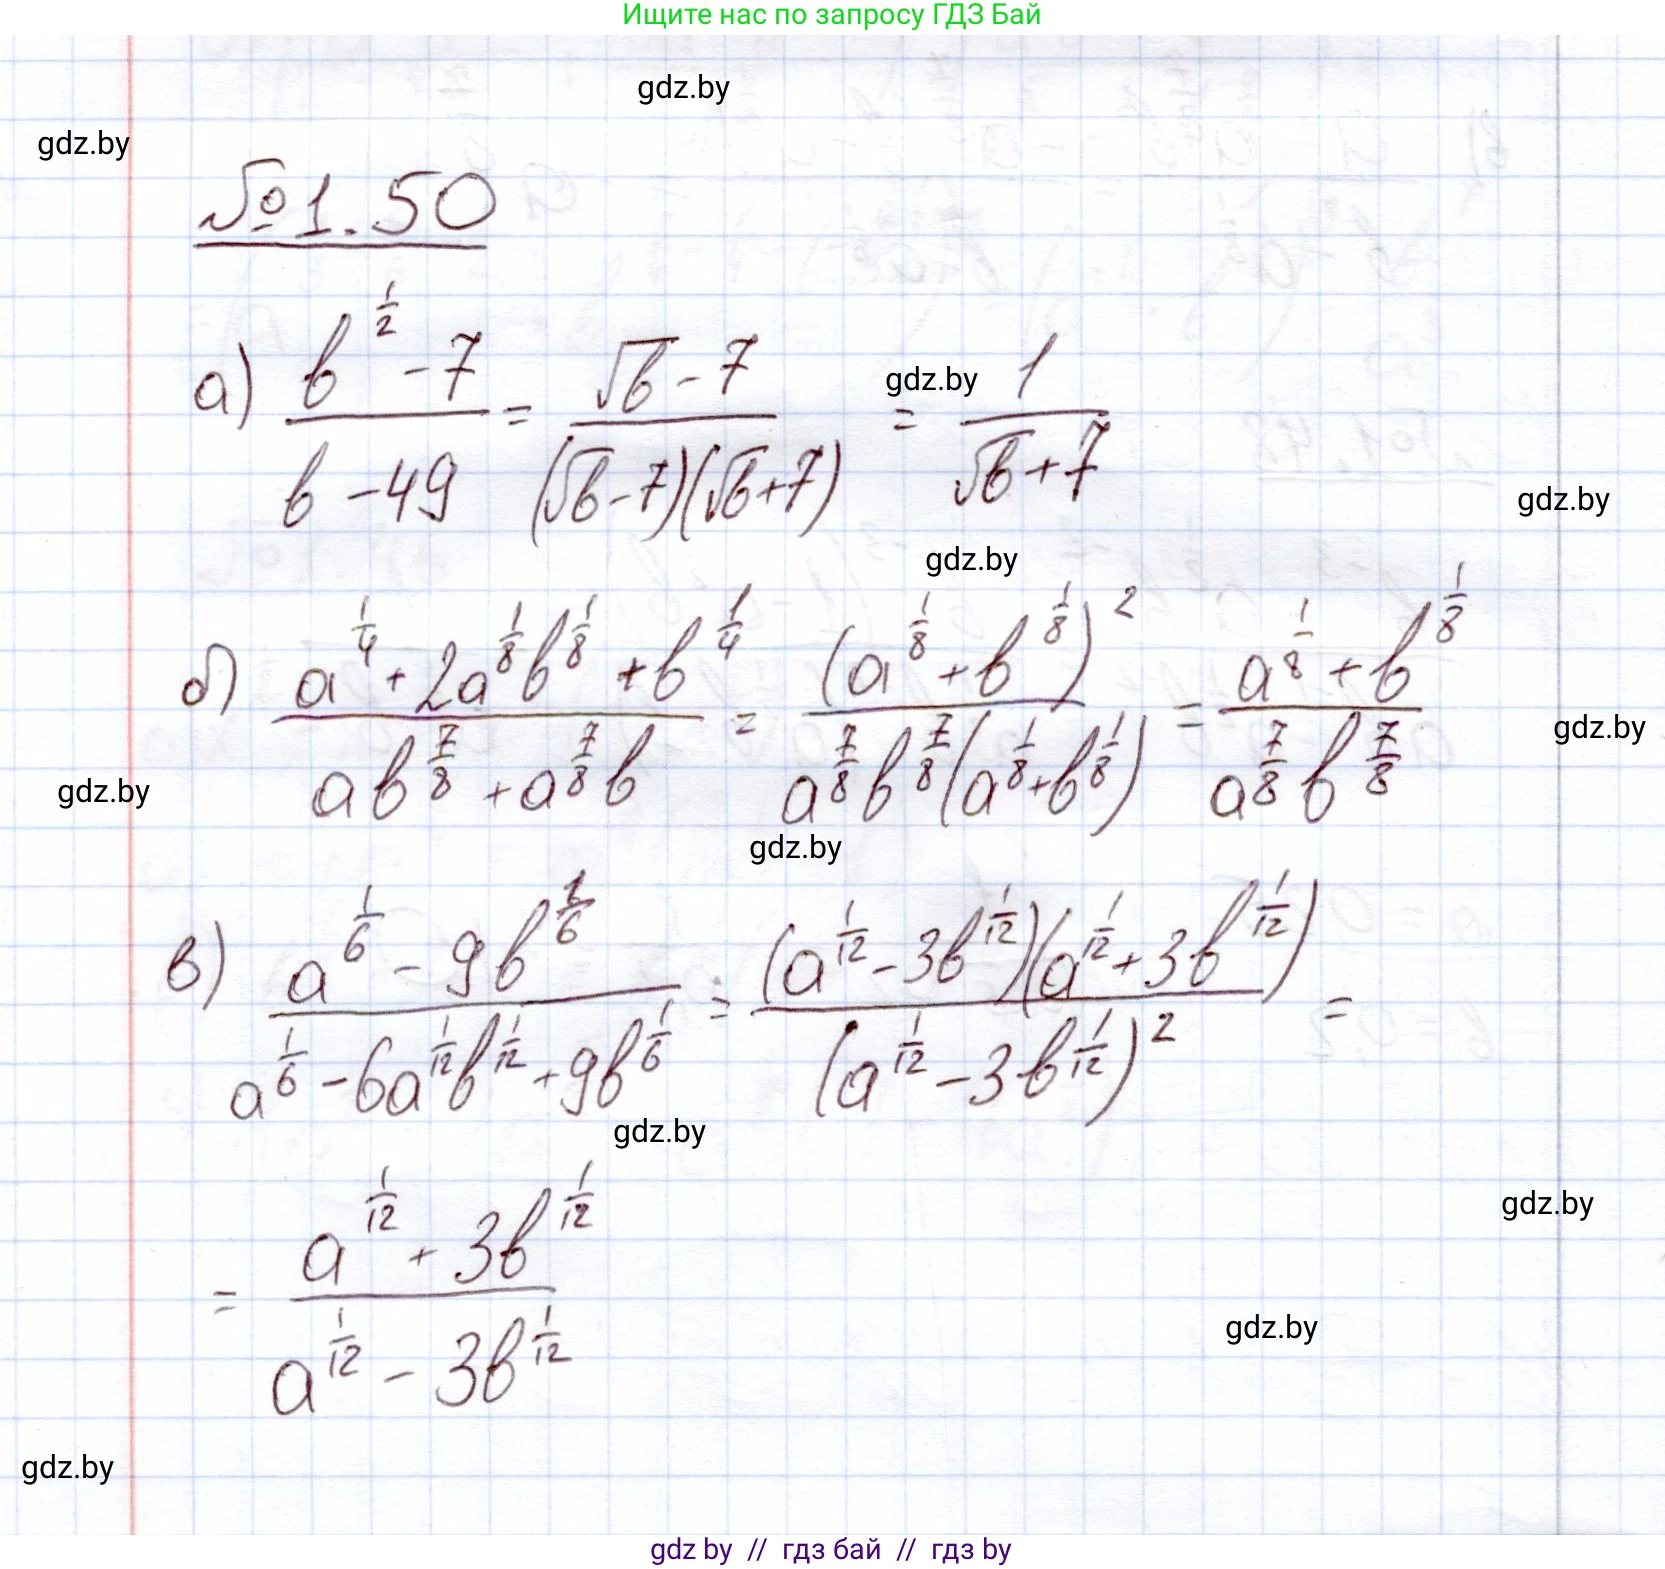 Ищите нас по запросу ГДЗ Бай
gdz.by
gdz.by
№1.50
а) \frac{b^{\frac{1}{2}} - 7}{b - 49} = \frac{\sqrt{b} - 7}{(\sqrt{b} - 7)(\sqrt{b} + 7)} = \frac{1}{\sqrt{b} + 7}
gdz.by
gdz.by
gdz.by
б) \frac{a^{\frac{1}{4}} + 2a^{\frac{1}{8}}b^{\frac{1}{8}} + b^{\frac{1}{4}}}{ab^{\frac{7}{8}} + a^{\frac{7}{8}}b} = \frac{(a^{\frac{1}{8}} + b^{\frac{1}{8}})^2}{a^{\frac{7}{8}}b^{\frac{7}{8}}(a^{\frac{1}{8}} + b^{\frac{1}{8}})} = \frac{a^{\frac{1}{8}} + b^{\frac{1}{8}}}{a^{\frac{7}{8}}b^{\frac{7}{8}}}
gdz.by
gdz.by
gdz.by
в) \frac{a^{\frac{1}{6}} - 9b^{\frac{1}{6}}}{a^{\frac{1}{6}} - 6a^{\frac{1}{12}}b^{\frac{1}{12}} + 9b^{\frac{1}{6}}} = \frac{(a^{\frac{1}{12}} - 3b^{\frac{1}{12}})(a^{\frac{1}{12}} + 3b^{\frac{1}{12}})}{(a^{\frac{1}{12}} - 3b^{\frac{1}{12}})^2} =
gdz.by
gdz.by
= \frac{a^{\frac{1}{12}} + 3b^{\frac{1}{12}}}{a^{\frac{1}{12}} - 3b^{\frac{1}{12}}}
gdz.by
gdz.by
gdz by // гдз бай // гдз by